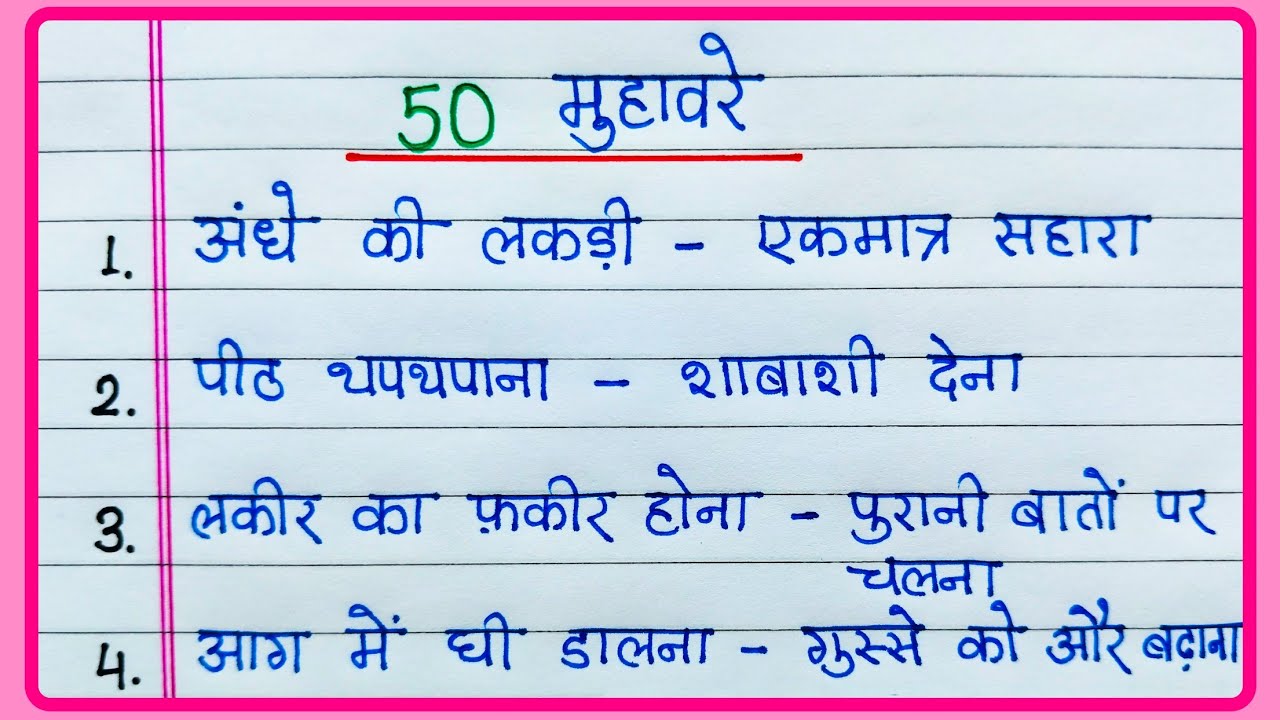 50 मुहावरे
1. अंधे की लकड़ी - एकमात्र सहारा
2. पीठ थपथपाना - शाबाशी देना
3. लकीर का फ़कीर होना - पुरानी बातों पर
चलना
4. आग में घी डालना - गुस्से को और बढ़ाना